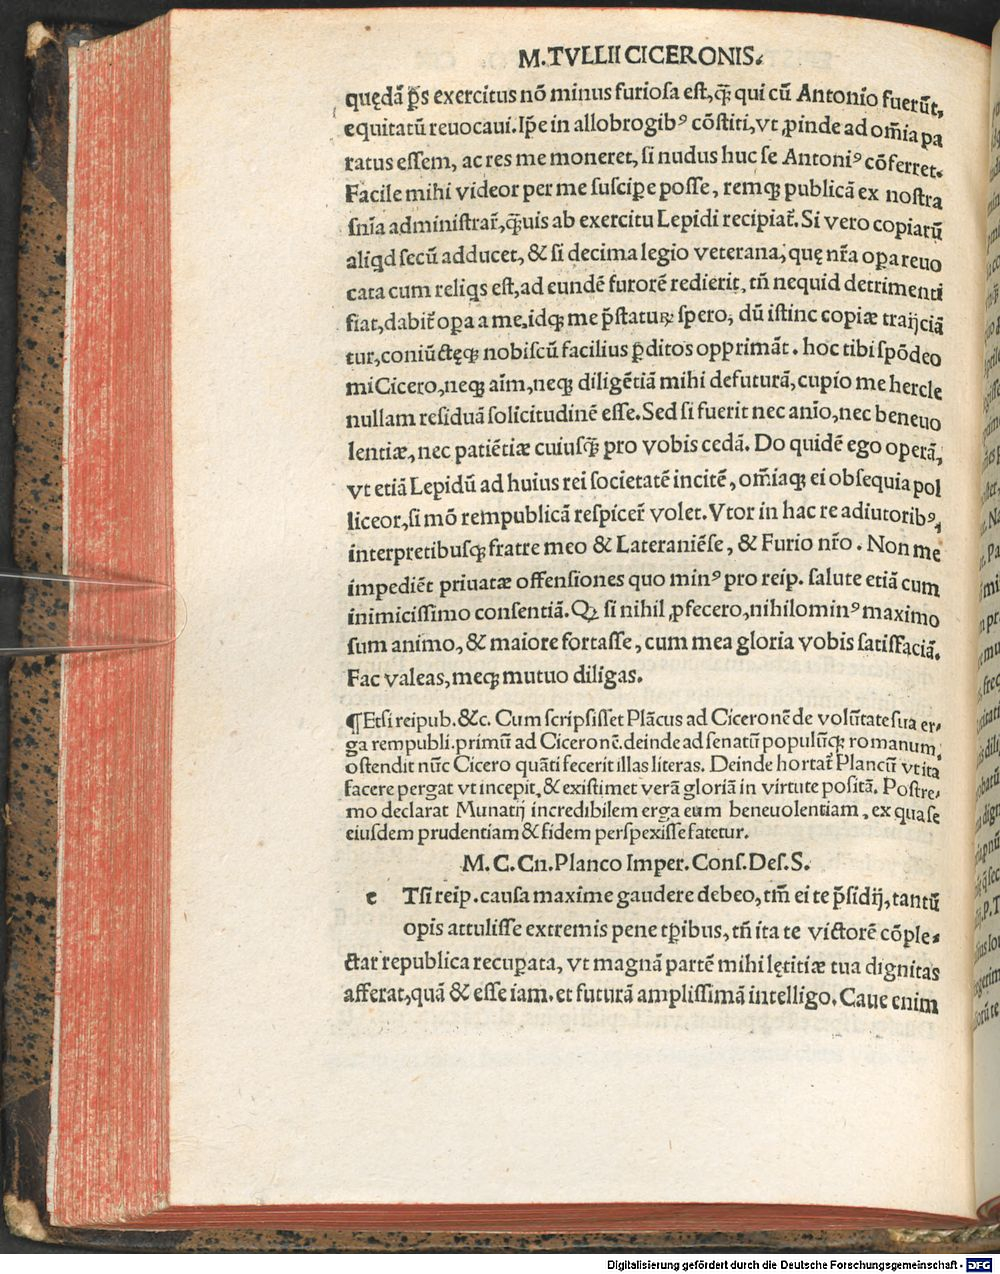 M.TVLLII CICERONIS.
quędā p̄s exercitus nō minus furiosa est,q̄ꝫ qui cū Antonio fuerūt,
equitatū reuocaui.Ip̄e in allobrogibꝰ cōstiti,vt ꝓinde ad om̄ia pa
ratus essem, ac res me moneret, si nudus huc se Antoniꝰ cōferret.
Facile mihi videor per me suscipe posse, remqꝫ publicā ex nostra
sn̄ia administrar̄,q̄ꝫuis ab exercitu Lepidi recipiat̄. Si vero copiarū
aliqd secū adducet, & si decima legio veterana, quę nr̄a opa reuo
cata cum reliqs est,ad eundē furorē redierit, tn̄ nequid detrimenti
fiat,dabit̄ opa a me.idqꝫ me p̄staturꝫ spero, dū istinc copiæ traijciā
tur,coniūctęqꝫ nobiscū facilius ꝑditos opprimāt. hoc tibi spōdeo
mi Cicero,neqꝫ aīm,neqꝫ diligētiā mihi defuturā,cupio me hercle
nullam residuā solicitudinē esse. Sed si fuerit nec anīo,nec beneuo
lentiæ,nec patiētiæ cuiusq̄ꝫ pro vobis cedā. Do quidē ego operā,
vt etiā Lepidū ad huius rei societatē incitē, om̄iaqꝫ ei obsequia pol
liceor,si mō rempublicā respicer̄ volet. Vtor in hac re adiutoribꝰ,
interpretibusqꝫ fratre meo & Lateraniēse, & Furio nr̄o. Non me
impediēt priuatæ offensiones quo minꝰ pro reip. salute etiā cum
inimicissimo consentiā. Qꝫ si nihil ꝓfecero,nihilominꝰ maximo
sum animo, & maiore fortasse, cum mea gloria vobis satisfaciā.
Fac valeas,meqꝫ mutuo diligas.
¶Etsi reipub.&c. Cum scripsisset Plācus ad Ciceronē de volūtate sua er-
ga rempubli.primū ad Ciceronē.deinde ad senatū populūqꝫ romanum,
ostendit nūc Cicero quāti fecerit illas literas. Deinde hortat̄ Plancū vt ita
facere pergat vt incepit, & existimet verā gloriā in virtute positā. Postre-
mo declarat Munatij incredibilem erga eum beneuolentiam, ex qua se
eiusdem prudentiam & fidem perspexisse fatetur.
M. C. Cn. Planco Imper. Cons. Des. S.
e Tsi reip.causa maxime gaudere debeo, tm̄ ei te p̄sidij, tantū
opis attulisse extremis pene tꝑibus, tn̄ ita te victorē cōple-
ctar republica recuꝑata, vt magnā partē mihi lętitiæ tua dignitas
afferat,quā & esse iam. et futurā amplissimā intelligo. Caue enim
Digitalisierung gefördert durch die Deutsche Forschungsgemeinschaft - DFG